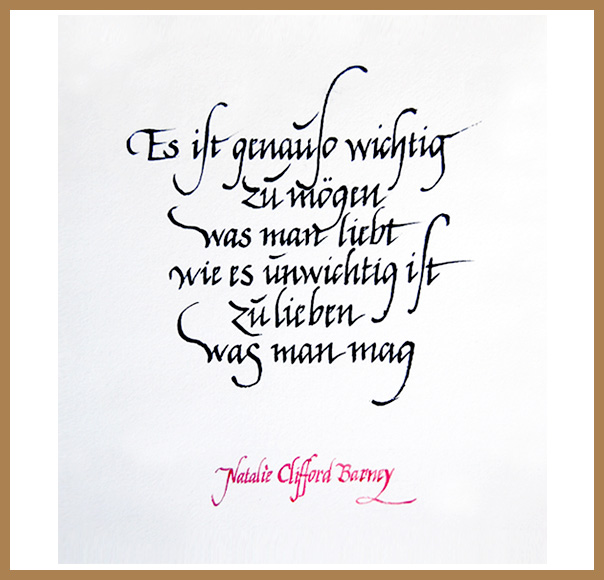 Es ist genauso wichtig
zu mögen
was man liebt
wie es unwichtig ist
zu lieben
was man mag
Natalie Clifford Barney